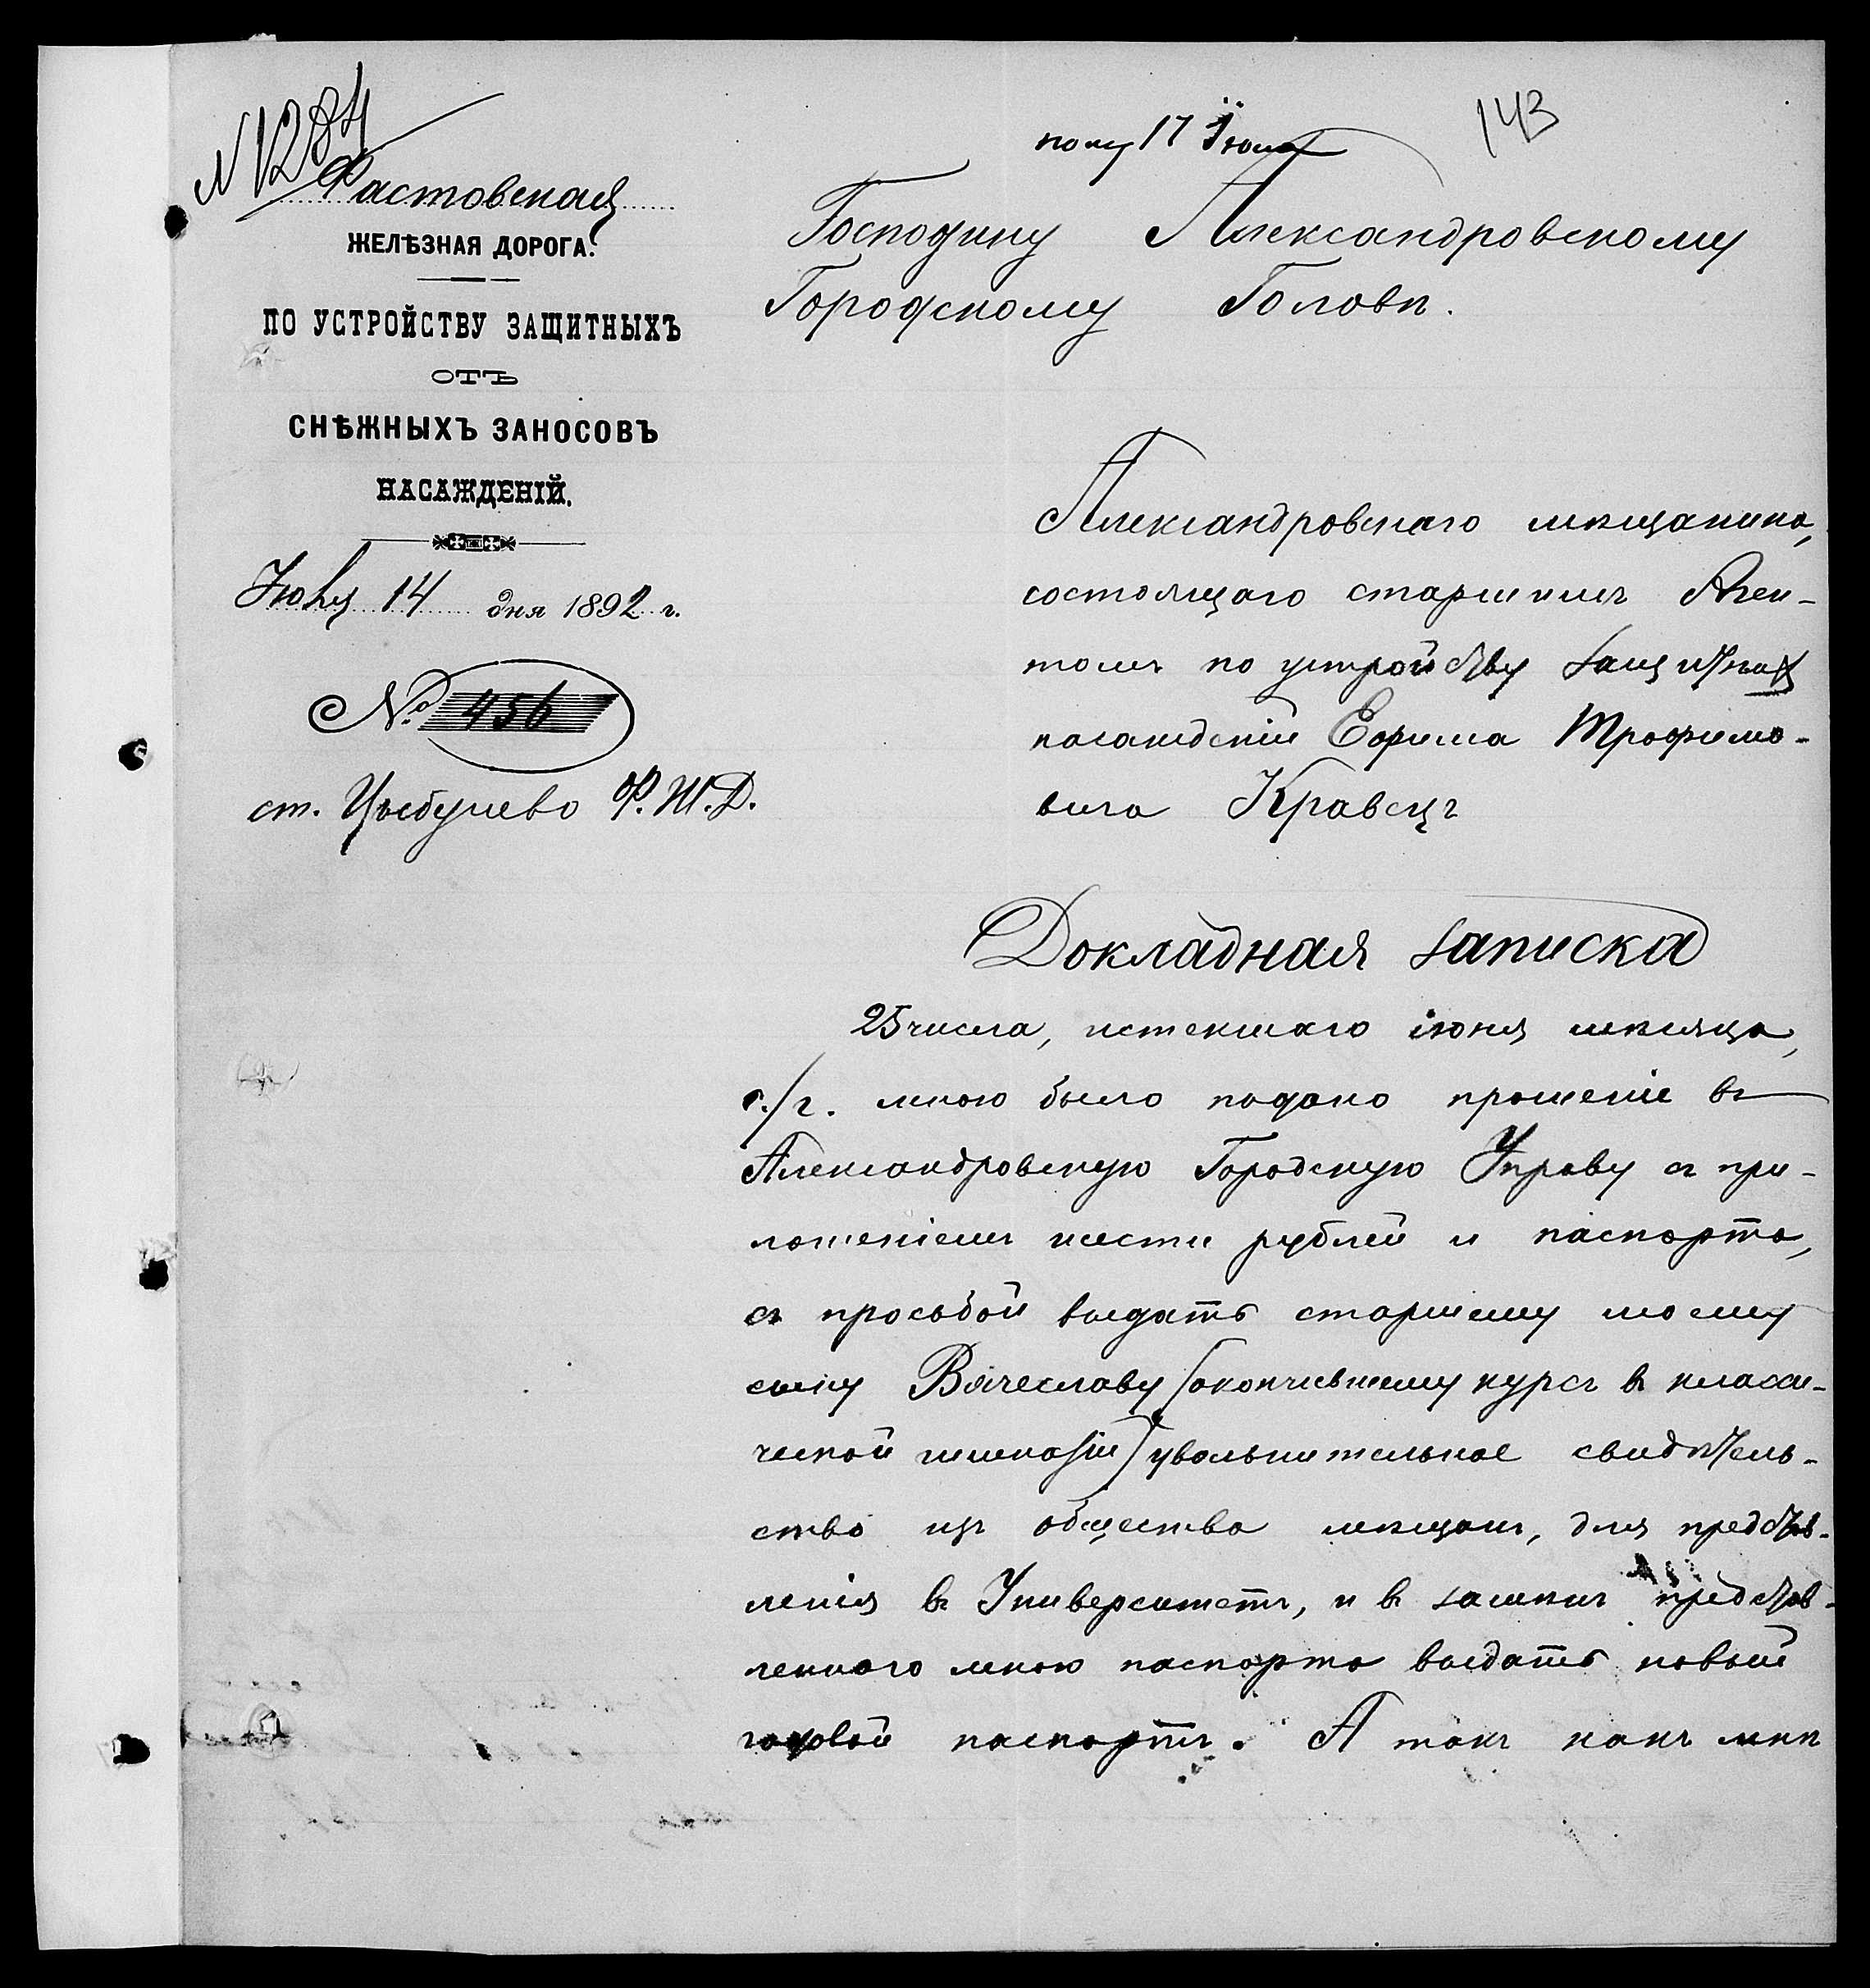 N 1284
Фастовская
ЖЕЛѢЗНАЯ ДОРОГА.
ПО УСТРОЙСТВУ ЗАЩИТНЫХЪ
ОТЪ
СНѢЖНЫХЪ ЗАНОСОВЪ
НАСАЖДЕНІЙ.
Июля 14 дня 1892 г.
№ 456
ст. Цыбулево Ф.Ж.Д.
143
полу 17 Іюля
Господину Александровскому
Городскому Головѣ.
Александровскаго мѣщанина,
состоящаго старшимъ Аген-
томъ по устройству защитных
насаждений Ефима Трофимо-
вича Кравецъ
Докладная записка
25 числа, истекшаго іюня мѣсяца,
с./г. мною было подано прошеніе въ
Александровскую Городскую Управу съ при-
ложеніемъ шести рублей и паспорта,
съ просьбой выдать старшему моему
сыну Вячеславу (окончившему курсъ въ класси-
ческой гимназіи) увольнительное свидѣтель-
ство изъ общества мѣщанъ, для представ-
ленія въ Университетъ, и въ замѣнъ представ-
леннаго мною паспорта выдать новый
годовой паспортъ. А такъ какъ мнѣ